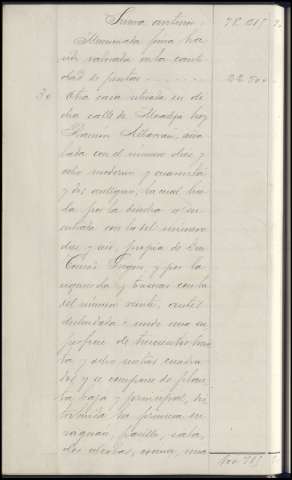 Suma anterior 78.015
Mencionada finca ha
sido valuada en la canti
dad de pesetas 22.500
30 Otra casa situada en di
cha calle de Almadeja hoy
Ramón Albarrán, seña
lada con el número diez y
ocho moderno y cuarenta
y dos antiguo; la cual lin
da por la derecha en
trada con la del número
diez y seis, propia de Don
Tomás y por la
izquierda y trasera con la
del número veinte, antes
deslindada: mide una su
perficie de trescientos trein
ta y ocho metros cuadra
dos y se compone de plan
ta baja y principal, dis
tribuida la primera en
zaguán, pasillo, sala,
dos alcobas, cocina, una